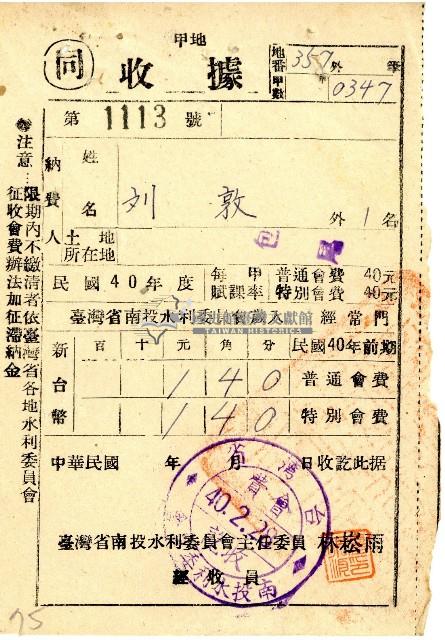 甲地
同 收據
地番 357 外 筆
甲數 0347
第 1113 號
納費人 姓名 刘敦 外 1 名
土地所在地 包尾
民國40年度 每甲賦課率 普通會費 40元 特別會費 40元
臺灣省南投水利委員會歲入 經常門
新台幣 百 十 元 角 分 民國40年前期
1 4 0 普通會費
1 4 0 特別會費
中華民國 年 月 日收訖此据
臺灣省南投水利委員會主任委員 林松雨
經收員
注意：限期內不繳清者依臺灣省各地水利委員會
征收會費辦法加征滯納金
國史館臺灣文獻館
TAIWAN HISTORICA
40.2.2
75